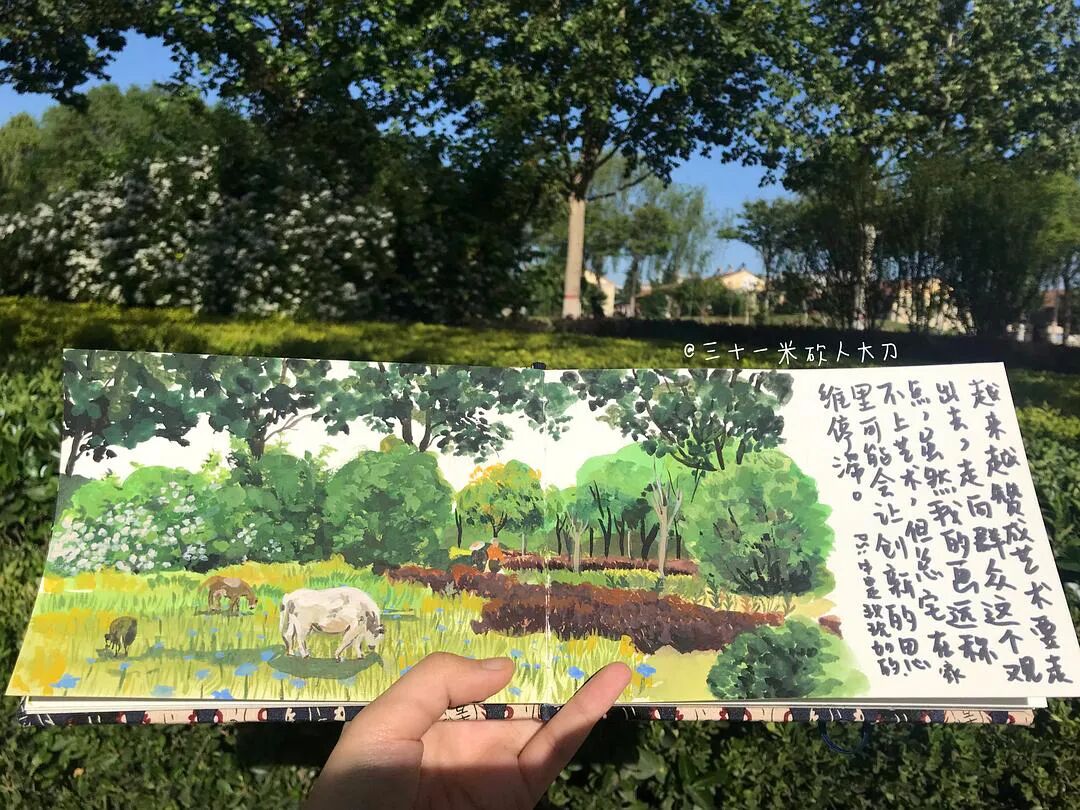 @三十一米砍人大刀
越来越赞成艺术要走
出去，走向群众这个观
点，虽然我的画远称
不上艺术，但总宅在家
里可能会让创新的思
维停滞。
P.S:牛是我加的